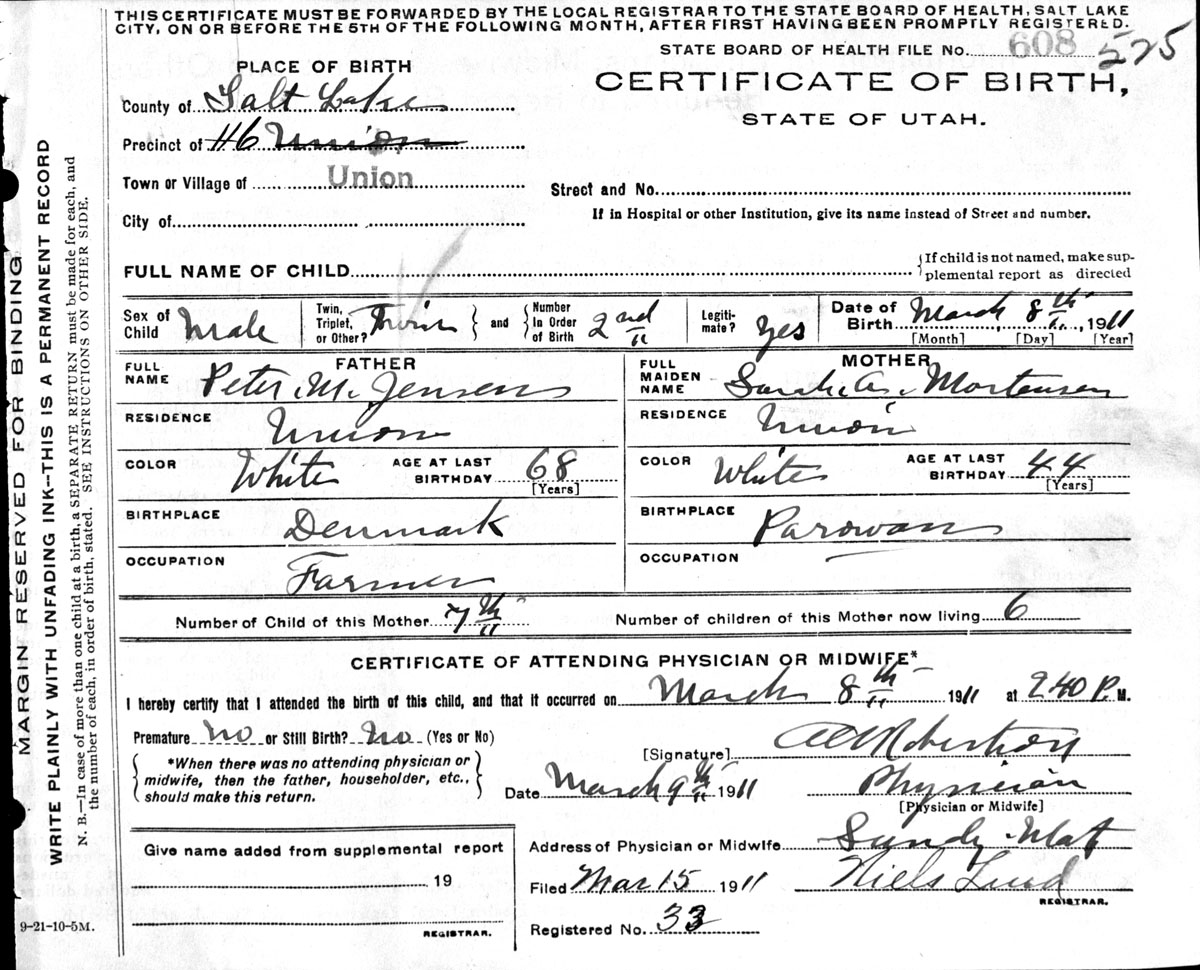 THIS CERTIFICATE MUST BE FORWARDED BY THE LOCAL REGISTRAR TO THE STATE BOARD OF HEALTH, SALT LAKE
CITY, ON OR BEFORE THE 5TH OF THE FOLLOWING MONTH, AFTER FIRST HAVING BEEN PROMPTLY REGISTERED.
STATE BOARD OF HEALTH FILE No. 608 575
PLACE OF BIRTH
CERTIFICATE OF BIRTH,
STATE OF UTAH.
County of Salt Lake
Precinct of 46 Union
Town or Village of Union
Street and No.
City of
If in Hospital or other Institution, give its name instead of Street and number.
FULL NAME OF CHILD
{If child is not named, make sup-
plemental report as directed
Sex of Child Male
Twin, Triplet, or Other? Twin } and { Number In Order of Birth 2nd
Legiti-mate? Yes
Date of Birth March 8th, 1911
[Month] [Day] [Year]
FATHER
FULL NAME Peter M. Jensen
RESIDENCE Union
COLOR White AGE AT LAST BIRTHDAY 68
[Years]
BIRTHPLACE Denmark
OCCUPATION Farmer
MOTHER
FULL MAIDEN NAME Sarah A. Mortensen
RESIDENCE Union
COLOR White AGE AT LAST BIRTHDAY 44
[Years]
BIRTHPLACE Parowan
OCCUPATION
Number of Child of this Mother 7th Number of children of this Mother now living 6
CERTIFICATE OF ATTENDING PHYSICIAN OR MIDWIFE*
I hereby certify that I attended the birth of this child, and that it occurred on March 8th 1911 at 2 40 P. M.
Premature No or Still Birth? No (Yes or No)
*When there was no attending physician or
midwife, then the father, householder, etc.,
should make this return.
[Signature] Robertson
Date March 9th 1911 Physician
[Physician or Midwife]
Give name added from supplemental report
19
REGISTRAR.
Address of Physician or Midwife Sandy Utah
Filed Mar 15 1911 Niels Lind
REGISTRAR.
Registered No. 33
MARGIN RESERVED FOR BINDING
WRITE PLAINLY WITH UNFADING INK--THIS IS A PERMANENT RECORD
N. B.—In case of more than one child at a birth, a SEPARATE RETURN must be made for each, and
the number of each, in order of birth, stated. SEE INSTRUCTIONS ON OTHER SIDE.
9-21-10-5M.